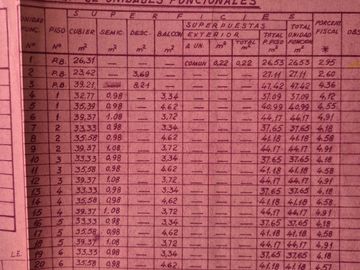 DE UNIDADES FUNCIONALES
SUPERFICIES
UNIDAD FUNC. Nº PISO Nº CUBIER. m² SEMIC. m² DESC. m² BALCON m² SUPERPUESTAS EXTERIOR A UN. m² TOTAL m² TOTAL P. PISO m² TOTAL UNIDAD FUNCION m² PORCENT. FISCAL OBS
1 P.B. 26,31 — — — COMUN 0,22 0,22 26,53 26,53 2,95
2 P.B. 23,42 — 3,69 — — — — 27,11 27,11 2,60
3 P.B. 39,21 — 8,21 — — — — 47,42 47,42 4,36
4 1 32,77 0,98 — 3,34 — — — 37,09 37,09 4,12
5 1 35,39 0,98 — 4,62 — — — 40,99 40,99 4,55
6 1 39,37 1,08 — 3,72 — — — 44,17 44,17 4,91
7 2 33,33 0,98 — 3,34 — — — 37,65 37,65 4,18
8 2 35,58 0,98 — 4,62 — — — 41,18 41,18 4,58
9 2 39,37 1,08 — 3,72 — — — 44,17 44,17 4,91
10 3 33,33 0,98 — 3,34 — — — 37,65 37,65 4,18
11 3 35,58 0,98 — 4,62 — — — 41,18 41,18 4,58
12 3 39,37 1,08 — 3,72 — — — 44,17 44,17 4,91
13 4 33,33 0,98 — 3,34 — — — 37,65 37,65 4,18
14 4 35,58 0,98 — 4,62 — — — 41,18 41,18 4,58
15 4 39,37 1,08 — 3,72 — — — 44,17 44,17 4,91
16 5 33,33 0,98 — 3,34 — — — 37,65 37,65 4,18
17 5 35,58 0,98 — 4,62 — — — 41,18 41,18 4,58
18 5 39,37 1,08 — 3,72 — — — 44,17 44,17 4,91
19 6 33,33 0,98 — 3,34 — — — 37,65 37,65 4,18
20 6 35,58 0,98 — 4,62 — — — 41,18 41,18 4,57
LE